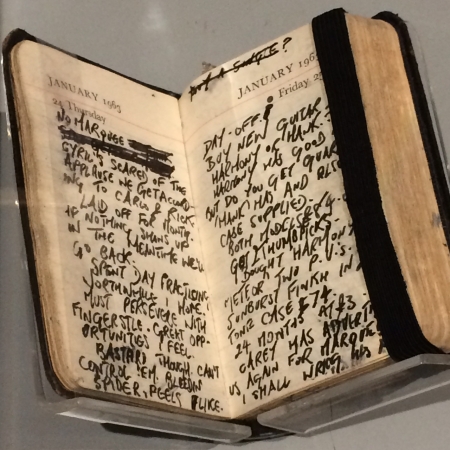 JANUARY 1963
24 Thursday
NO MARQUEE
CYRIL'S SCARED OF THE
APPLAUSE WE GET ACCORD-
ING TO CARLO & RICK.
LAID OFF FOR MONTH
IF NOTHING SHOWS UP
IN THE MEANTIME WE'LL
GO BACK.
SPENT DAY PRACTICING
WORTHWHILE I HOPE.
MUST PERSEVERE WITH
FINGERSTYLE. GREAT OPP-
ORTUNITIES I FEEL.
BASTARD THOUGH. CAN'T
CONTROL 'EM, BLEEDIN
SPIDER, FEELS LIKE.
BUY A SINGLE?
JANUARY 196
Friday 25
DAY-OFF.
BUY NEW GUITAR
HARMONY OR HAWK?
HARMONY WAS GOOD
BUT DO YOU GET GUAR
HAWK HAS AND ALSO
CASE SUPPLIED.
BOTH
GET THUMBPICKS
BOUGHT HARMONY
TWO P.U.S.
SUNBURST FINISH IN 2
TONE CASE £74
24 MONTHS AT £3
CAREY HAS ADVERT
US AGAIN FOR MARQUEE
SMALL